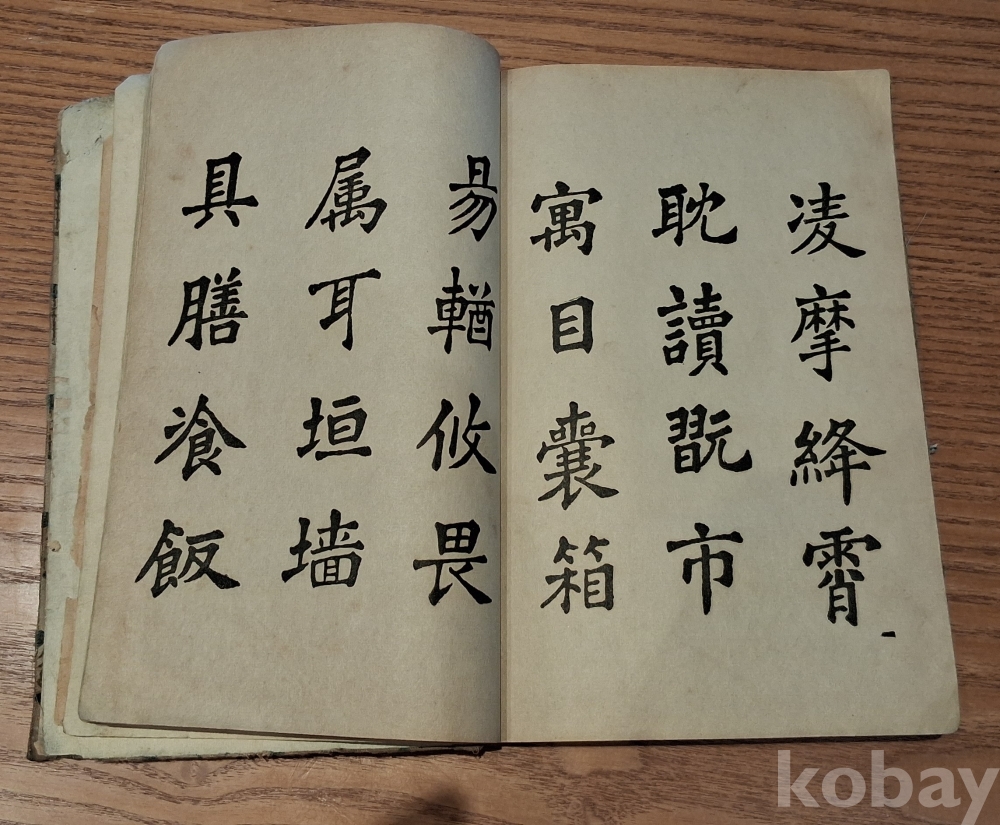 凌摩絳霄
耽讀翫市
寓目囊箱
易輶攸畏
属耳垣墙
具膳飡飯
kobay